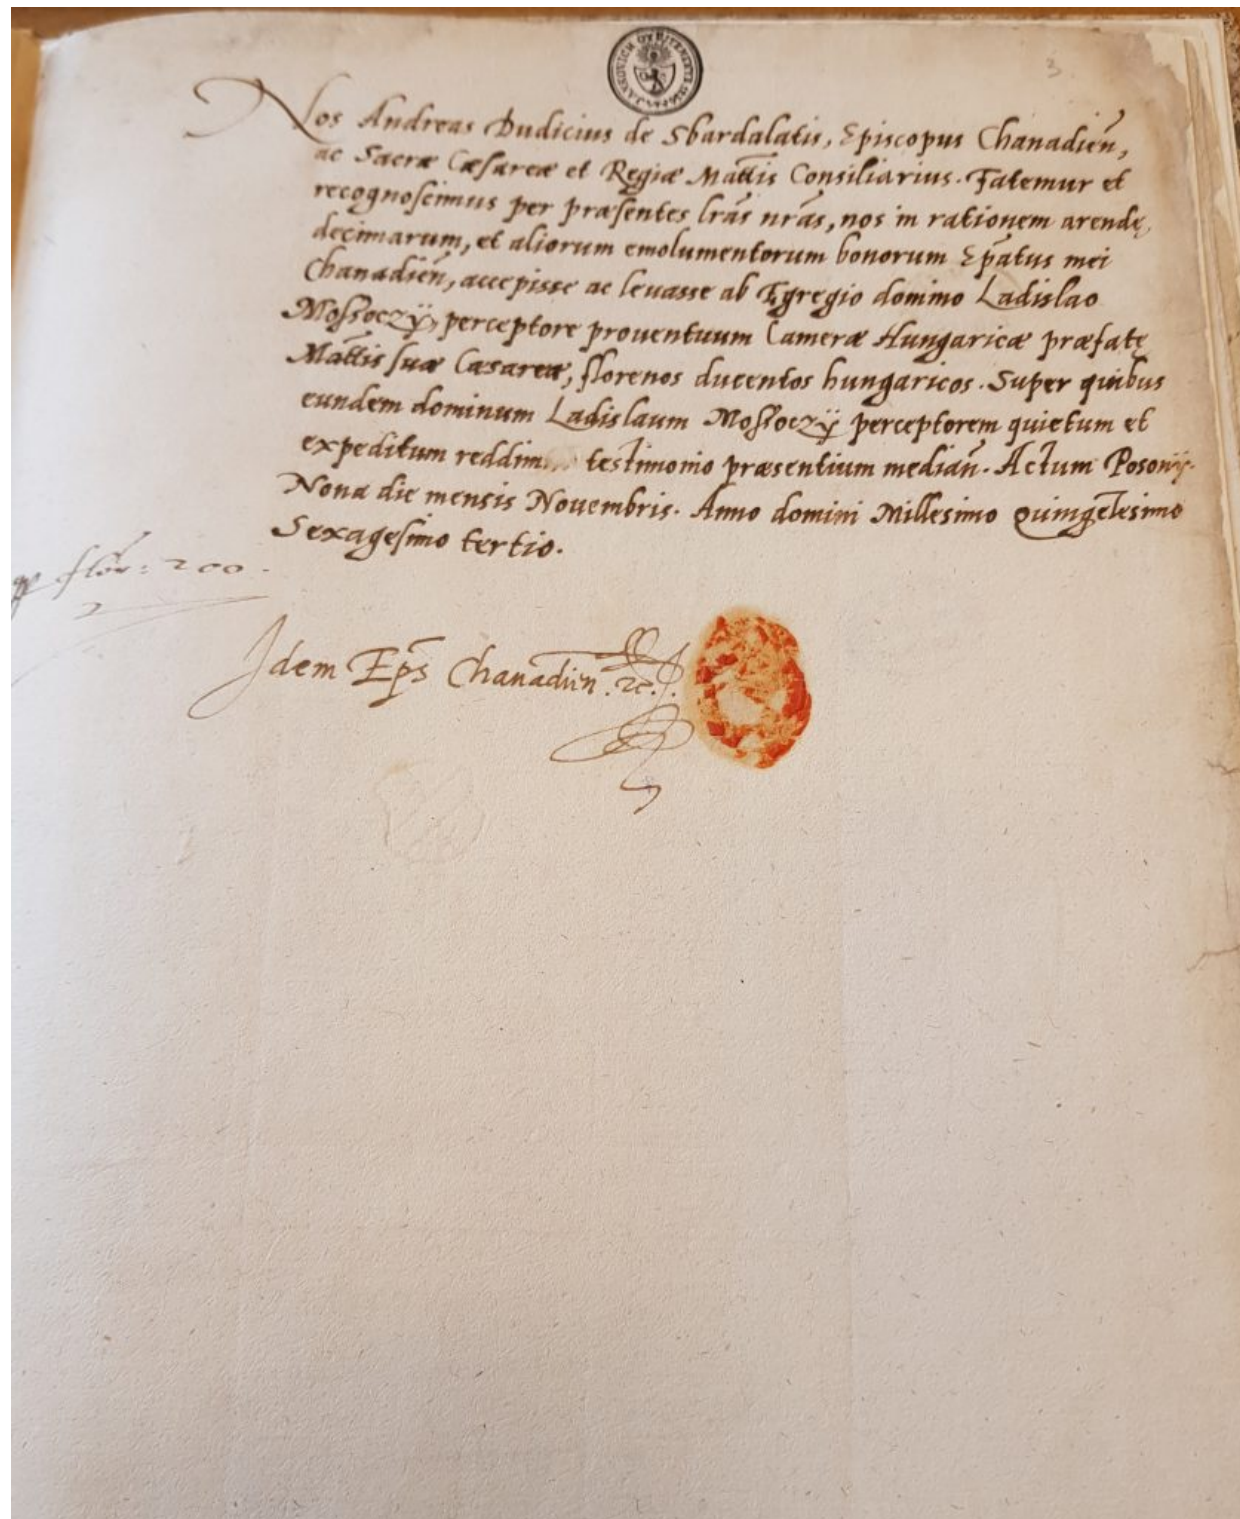 3.
Nos Andreas Dudicius de Sbardalatis, Episcopus Chanadien̄,
ac Sacræ Cæsareæ et Regiæ Mattis Consiliarius. Fatemur et
recognoscimus per præsentes lrās nrās, nos in rationem arendę,
decimarum, et aliorum emolumentorum bonorum Ep̄atus mei
Chanadien̄, accepisse ac leuasse ab Egregio domino Ladislao
Mossoczÿ, perceptore prouentuum Cameræ Hungaricæ præfatę
Mattis suæ Cæsareæ, florenos ducentos hungaricos. Super quibus
eundem dominum Ladislaum Mossoczÿ perceptorem quietum et
expeditum reddim testimonio præsentium mediań. Actum Posonij.
Nona die mensis Nouembris. Anno domini Millesimo Quingētesimo
Sexagesimo tertio.
flor: 200.
Idem Ep̄s Chanadien̄. &c.